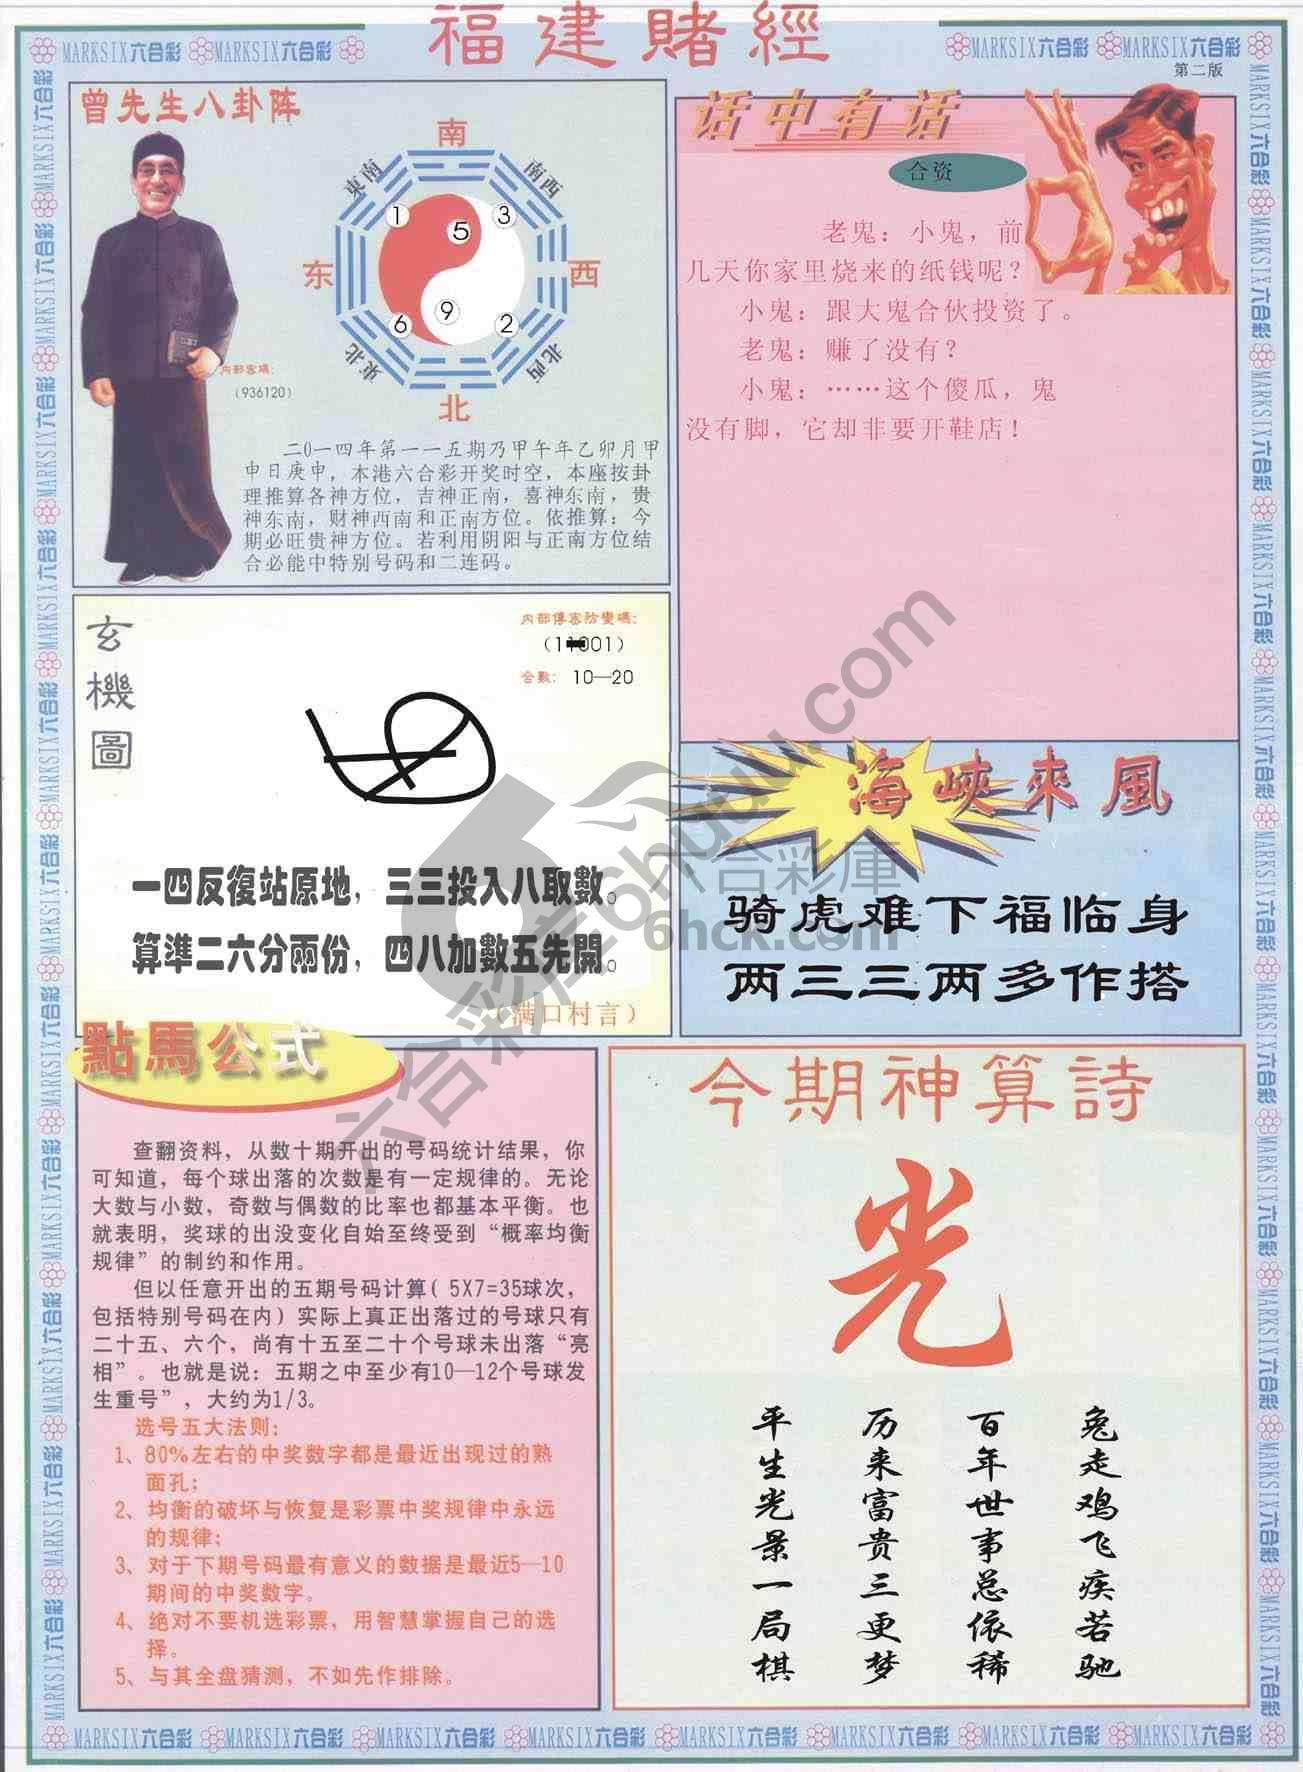 福建賭經
MARKSIX六合彩 MARKSIX六合彩
MARKSIX六合彩 MARKSIX六合彩
第二版
曾先生八卦阵
南
東南
南西
1
3
5
东
西
9
6
2
東北
北西
北
内部密码:
(936120)
二0一四年第一一五期乃甲午年乙卯月甲
申日庚申，本港六合彩开奖时空，本座按卦
理推算各神方位，吉神正南，喜神东南，贵
神东南，财神西南和正南方位。依推算：今
期必旺贵神方位。若利用阴阳与正南方位结
合必能中特别号码和二连码。
话中有话
合资
老鬼：小鬼，前
几天你家里烧来的纸钱呢？
小鬼：跟大鬼合伙投资了。
老鬼：赚了没有？
小鬼：……这个傻瓜，鬼
没有脚，它却非要开鞋店！
玄機圖
合數： 10—20
一四反復站原地，三三投入八取數。
算準二六分兩份，四八加數五先開。
（满口村言）
海峽來風
骑虎难下福临身
两三三两多作搭
點馬公式
查翻资料，从数十期开出的号码统计结果，你
可知道，每个球出落的次数是有一定规律的。无论
大数与小数，奇数与偶数的比率也都基本平衡。也
就表明，奖球的出没变化自始至终受到“概率均衡
规律”的制约和作用。
但以任意开出的五期号码计算( 5X7=35球次，
包括特别号码在内）实际上真正出落过的号球只有
二十五、六个，尚有十五至二十个号球未出落“亮
相”。也就是说：五期之中至少有10—12个号球发
生重号”，大约为1/3。
选号五大法则：
1、80%左右的中奖数字都是最近出现过的熟
面孔；
2、均衡的破坏与恢复是彩票中奖规律中永远
的规律；
3、对于下期号码最有意义的数据是最近5—10
期间的中奖数字。
4、绝对不要机选彩票，用智慧掌握自己的选
择。
5、与其全盘猜测，不如先作排除。
今期神算詩
光
兔走鸡飞疾若驰
百年世事总依稀
历来富贵三更梦
平生光景一局棋
六合彩库 6huuu.com
六合彩庫
6hck.com
MARKSIX六合彩 MARKSIX六合彩 MARKSIX六合彩 MARKSIX六合彩 MARKSIX六合彩 MARKSIX六合彩 MARKSIX六合彩 MARKSIX六合彩